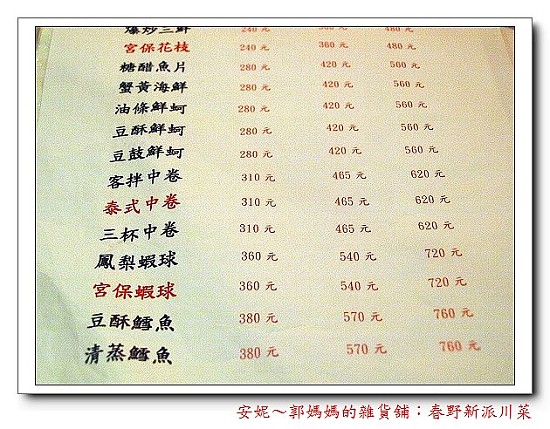 爆炒三鮮 240 元 360 元 480 元
宮保花枝 240 元 360 元 480 元
糖醋魚片 280 元 420 元 560 元
蟹黃海鮮 280 元 420 元 560 元
油條鮮蚵 280 元 420 元 560 元
豆酥鮮蚵 280 元 420 元 560 元
豆鼓鮮蚵 280 元 420 元 560 元
客拌中卷 310 元 465 元 620 元
泰式中卷 310 元 465 元 620 元
三杯中卷 310 元 465 元 620 元
鳳梨蝦球 360 元 540 元 720 元
宮保蝦球 360 元 540 元 720 元
豆酥鱈魚 380 元 570 元 760 元
清蒸鱈魚 380 元 570 元 760 元
安妮～郭媽媽的雜貨舖：春野新派川菜